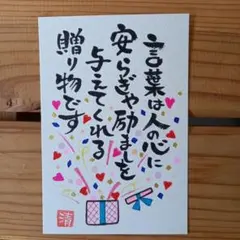 言葉は人の心に
安らぎや励ましを
与えてくれる
贈り物です
清